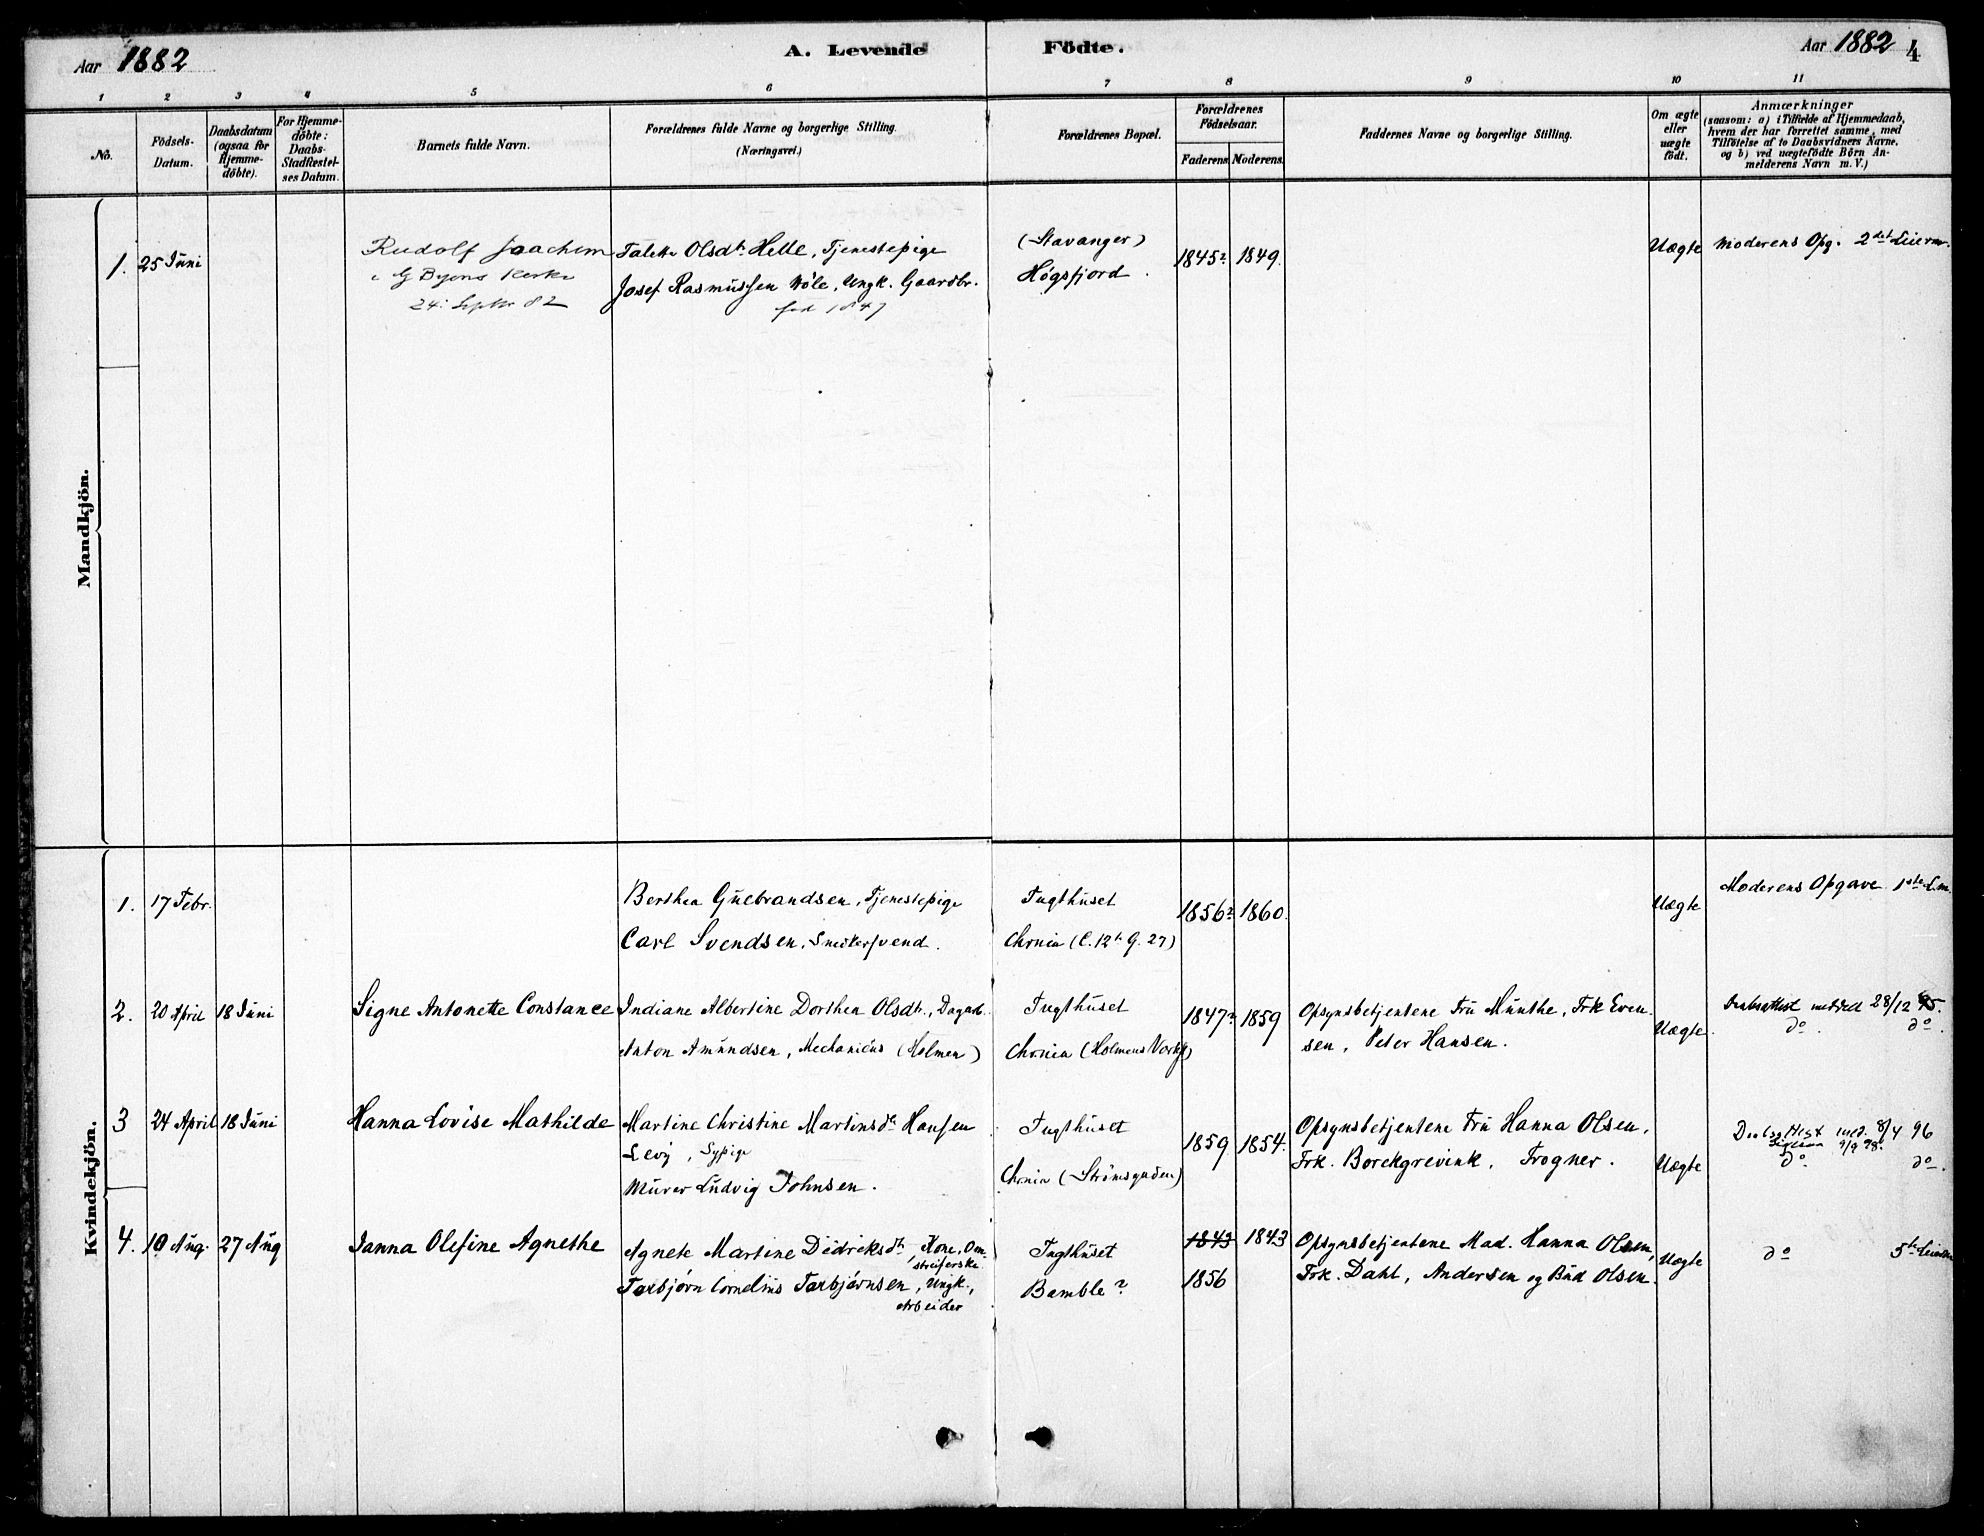 Aar 1882
A. Levende Födte.
Aar 1882 4
1 2 3 4 5 6 7 8 9 10 11
No.
Födsels-
Datum.
Daabsdatum
(ogsaa for
Hjemme-
döbte).
For Hjemme-
döbte:
Daabs-
Stadfæstel-
ses Datum.
Barnets fulde Navn.
Forældrenes fulde Navne og borgerlige Stilling.
(Næringsvei.)
Forældrenes Bopæl.
Forældrenes
Födselsaar.
Faderens. Moderens.
Faddernes Navne og borgerlige Stilling.
Om ægte
eller
uægte
födt.
Anmærkninger
(saasom: a) i Tilfælde af Hjemmedaab,
hvem der har forrettet samme, med
Tilföielse af to Daabsvidners Navne,
og b) ved uægtefödte Börn An-
melderens Navn m. V.)
Mandkjön.
1. 25 Juni
Rudolf Joachim
i G Byens Kirke
24. Septbr 82
Talette Olsdtr Helle, Tjenestepige
Josef Rasmussen Höle, Ungk. Gaardbr.
fød 1847
(Stavanger)
Høgsfjord.
1845? 1849.
Uægte
Moderens Opg. 2det Leierm.
Kvindekjön.
1. 17 Febr.
Berthea Gulbrandsen, Tjenestepige
Carl Svendsen, Snekersvend.
Tugthuset
Chrnia (C. 12te G. 27)
1856? 1860.
Uægte
Moderens Opgave 1ste L.m.
2. 20 April 18 Juni
Signe Antonette Constance
Indiane Albertine Dorthea Olsdtr., Dagad.
Anton Amundsen, Mechanicus (Holmen)
Tugthuset
Chrnia (Holmens Verkst)
1847? 1859
Opsynsbetjentene Fru Munthe, Frk Even-
sen, Peter Hansen.
Uægte
Daabsattest meddelt 28/12 95.
do. do.
3 24 April 18 Juni
Hanna Lovise Mathilde
Martine Christine Martinsdtr Hansen
Levy, Sypige
Murer Ludvig Johnsen.
Tugthuset
Chrnia (Strömsgaden)
1859 1854.
Opsynsbetjentene Fru Hanna Olsen,
Frk. Borchgrevink, Frogner.
Uægte
Daabsattest med. 8/4 96
9/9 98.
do do.
4. 10 Aug. 27 Aug
Janna Olefine Agnethe
Agnete Martine Didriksdtr, Kone, Om-
streiferske
Torbjørn Cornelius Torbjørnsen, Ungk.,
Arbeider
Tugthuset
Bamble?
1843 1843
1856
Opsynsbetjentene Mad. Hanna Olsen,
Frk. Dahl, Andersen og Bud Olsen.
Uægte
do 5te Leierm